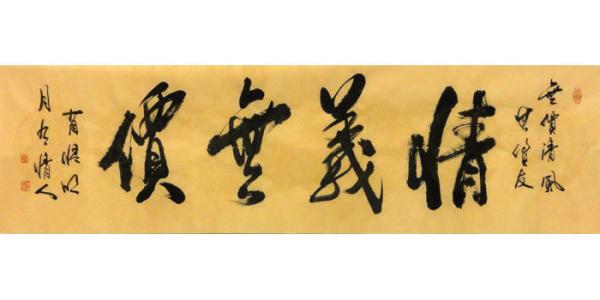 無價清風
友
情義無價
有情明
月情人